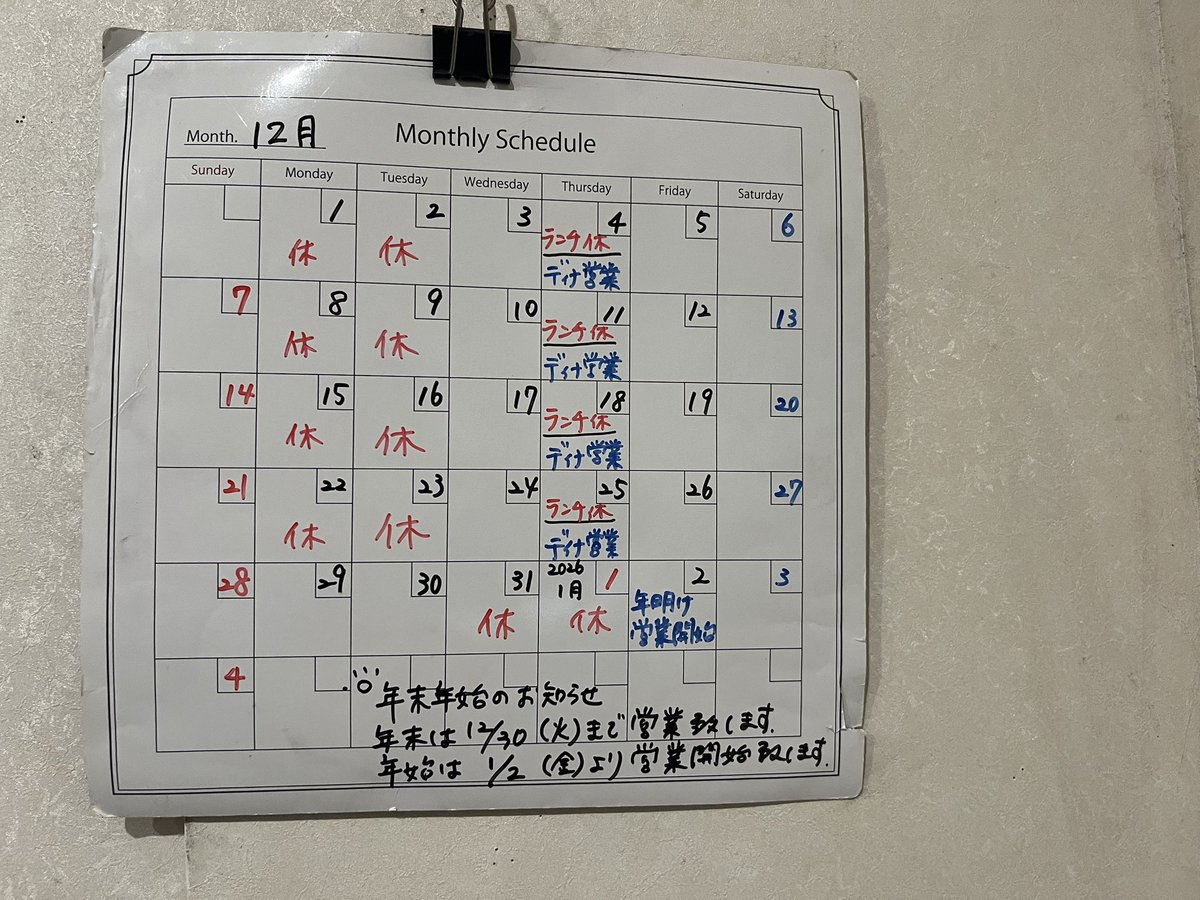 Month. 12月 Monthly Schedule
Sunday Monday Tuesday Wednesday Thursday Friday Saturday
1 2 3 4 5 6
休 休 ランチ休
ディナ営業
7 8 9 10 11 12 13
休 休 ランチ休
ディナ営業
14 15 16 17 18 19 20
休 休 ランチ休
ディナ営業
21 22 23 24 25 26 27
休 休 ランチ休
ディナ営業
28 29 30 31 2026 1月 1 2 3
休 休 年明け
営業開始
4
年末年始のお知らせ
年末は12/30(火)まで営業致します.
年始は1/2(金)より営業開始致します.